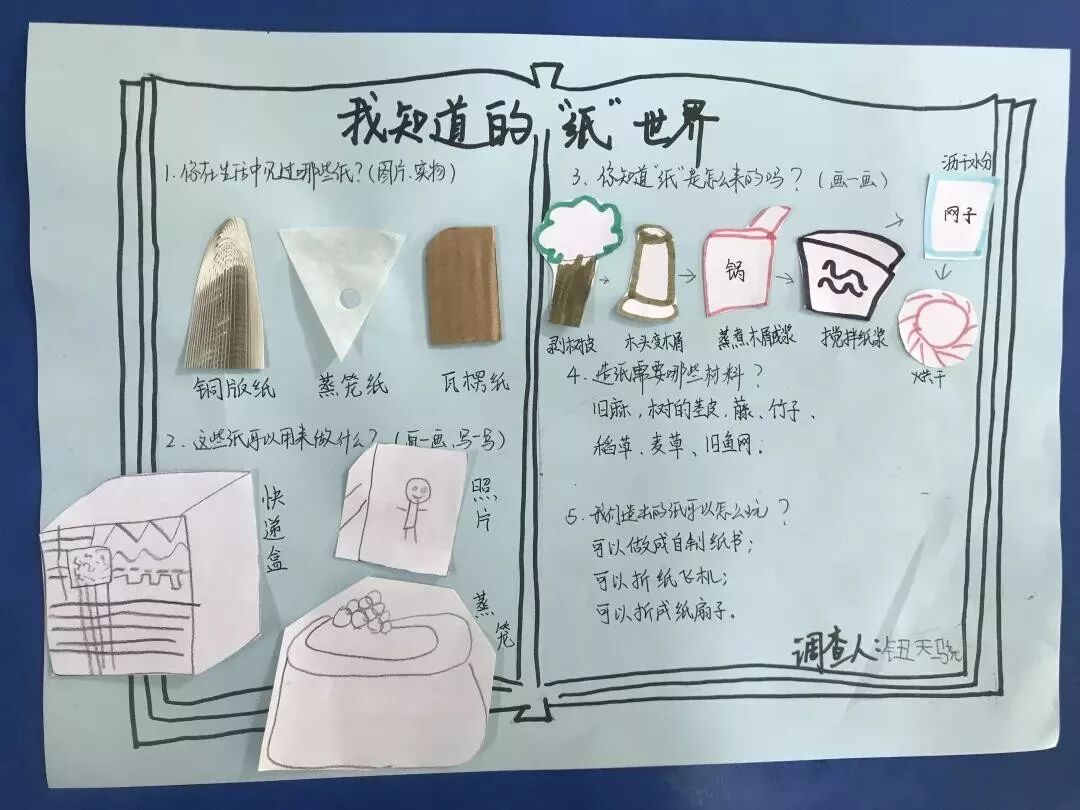 我知道的“纸”世界
1.你在生活中见过哪些纸?(图片、实物)
铜版纸
蒸笼纸
瓦楞纸
2.这些纸可以用来做什么?(画一画、写一写)
快递盒
照片
蒸笼
3.你知道“纸”是怎么来的吗?(画一画)
剥树皮
木头变木屑
锅
蒸煮木屑成浆
搅拌纸浆
沥干水分
网子
烘干
4.造纸需要哪些材料?
旧麻,树的茎皮、藤、竹子、
稻草、麦草、旧鱼网.
5.我们造出的纸可以怎么玩?
可以做成自制纸书;
可以折纸飞机;
可以折成纸扇子.
调查人:钮天骁